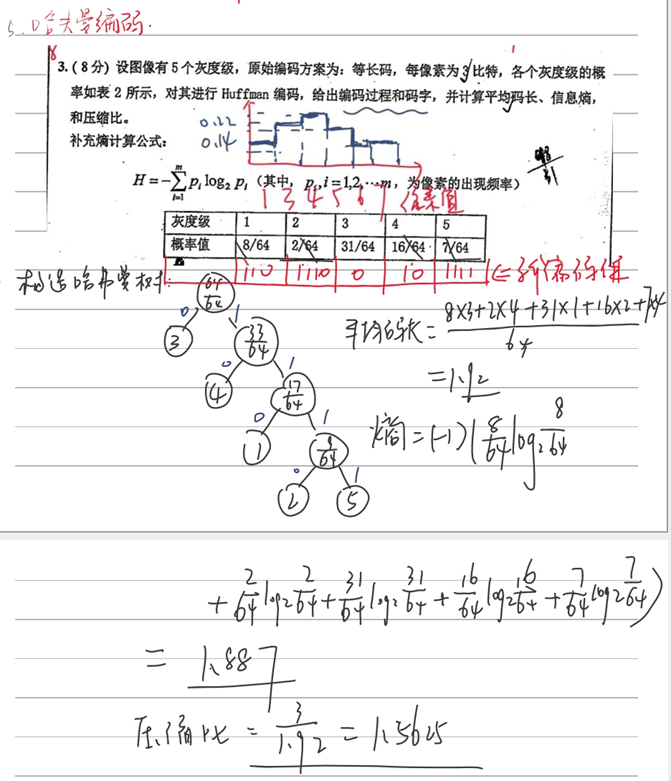 5. 哈夫曼编码.
3.(8分) 设图像有5个灰度级，原始编码方案为：等长码，每像素为3比特，各个灰度级的概
率如表2所示，对其进行Huffman编码，给出编码过程和码字，并计算平均码长、信息熵，
和压缩比。
0.22
补充熵计算公式：
0.14
H = -∑_{i=1}^{m} p_i log₂ p_i（其中，p_i, i=1,2,…m，为像素的出现频率）
1 3 4 5 6 7
灰度级 1 2 3 4 5
概率值 8/64 2/64 31/64 16/64 7/64
110 1110 0 10 1111
构造哈夫曼树:
64/64
0 1
3 33/64
0 1
4 17/64
0 1
1 9/64
0 1
2 5
平均码长 = (8×3+2×4+31×1+16×2+7×4)/64
=1.92
熵 = (-1)(8/64 log₂ 8/64
+ 2/64 log₂ 2/64 + 31/64 log₂ 31/64 + 16/64 log₂ 16/64 + 7/64 log₂ 7/64)
= 1.887
压缩比 = 3/1.92 = 1.5625